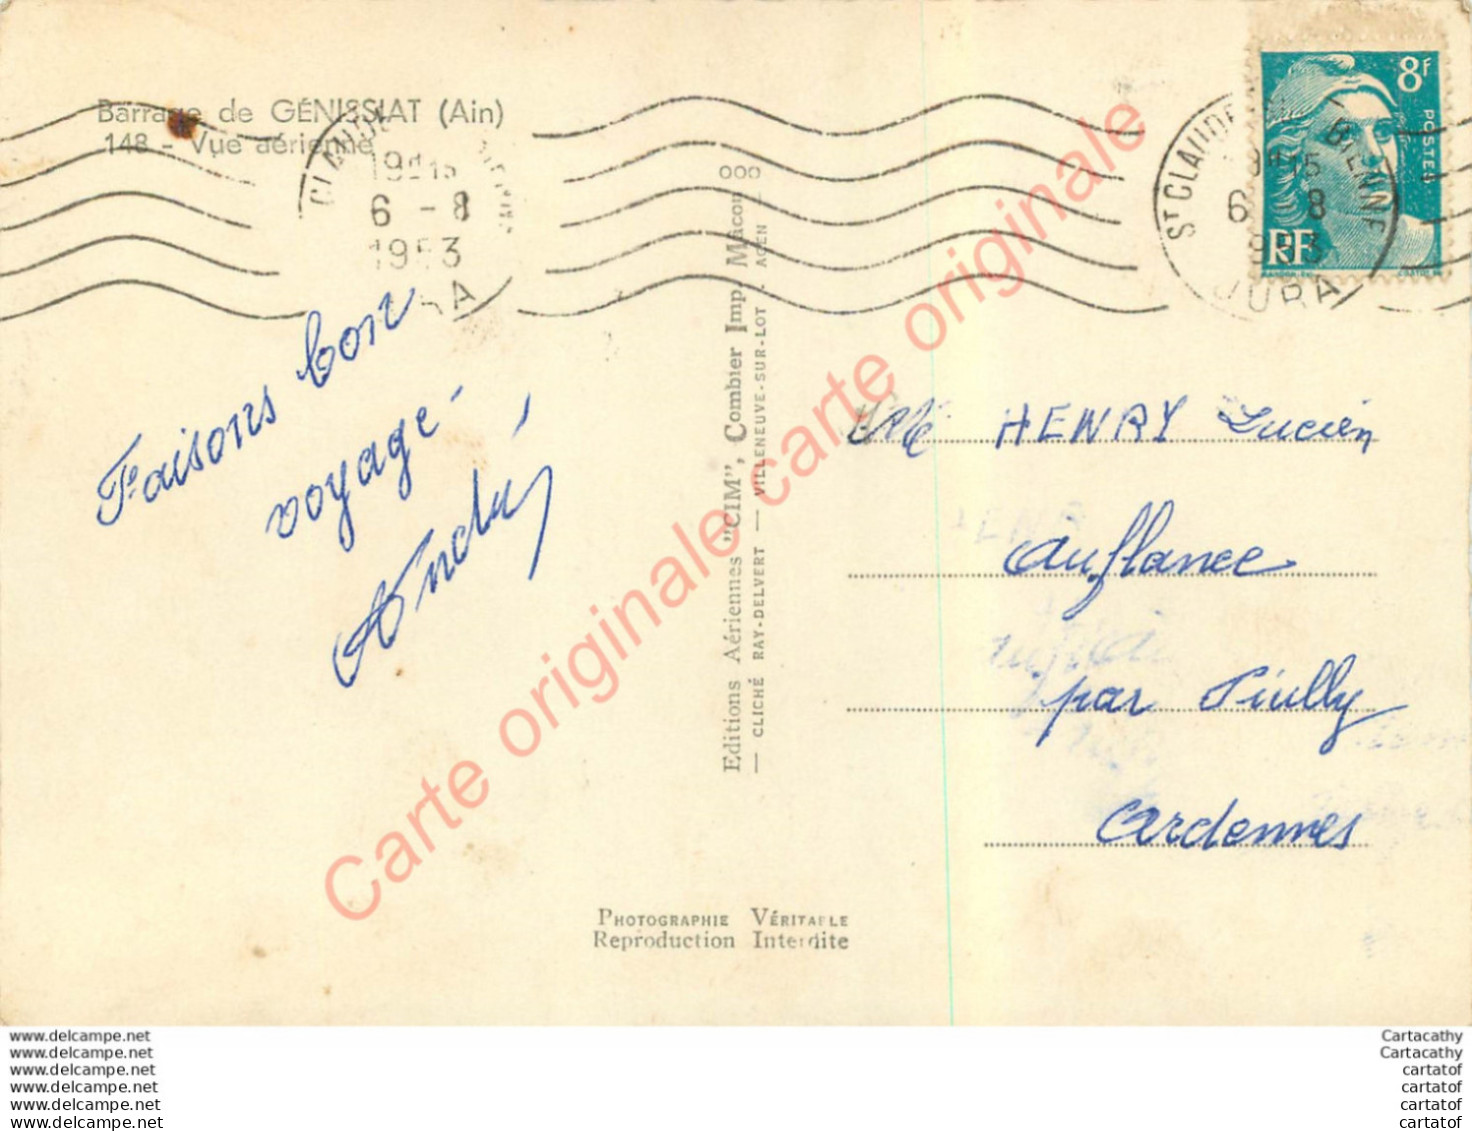 Barrage de GÉNISSIAT (Ain)
148 - Vue aérienne
CLAUDE
19H15
6 - 8
1953
Faisons bon
voyage
André
Editions Aériennes "CIM", Combier Imp. Mâcon
— CLICHÉ RAY-DELVERT — VILLENEUVE-SUR-LOT - AGEN
ooo
PHOTOGRAPHIE VÉRITABLE
Reproduction Interdite
8F
POSTES
RF
ST CLAUDE BIENNE
15
6 8
1953
JURA
HENRY Lucien
Auflance
par Puilly
Ardennes
Carte originale carte originale
www.delcampe.net
www.delcampe.net
www.delcampe.net
www.delcampe.net
www.delcampe.net
www.delcampe.net
Cartacathy
Cartacathy
cartatof
cartatof
cartatof
cartatof